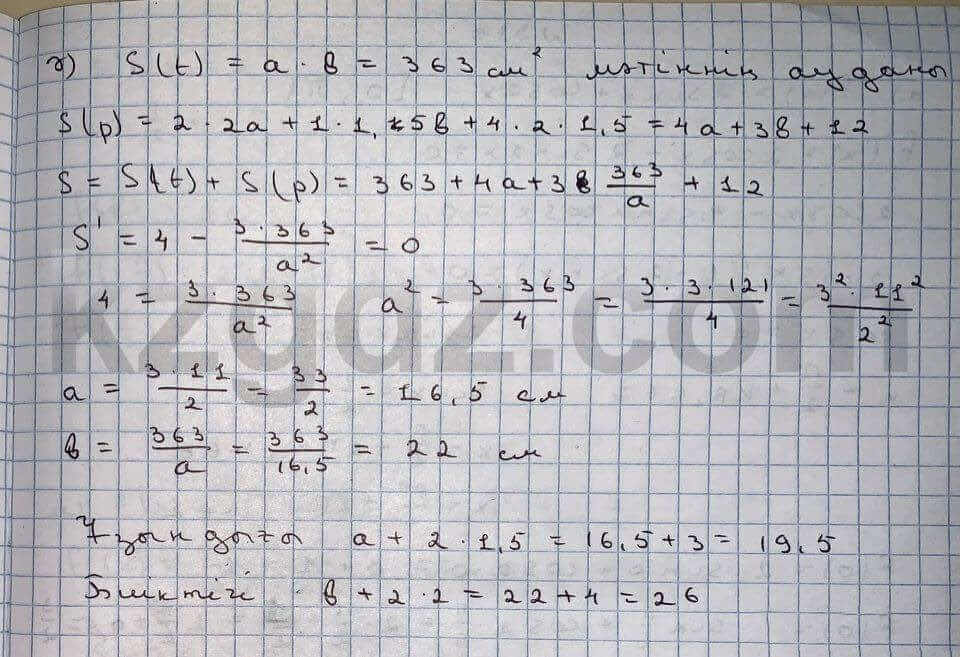 г) S(t) = a · b = 363 см² мәтіннің ауданы
S(p) = 2 · 2a + 1 · 1,5b + 4 · 2 · 1,5 = 4a + 3b + 12
S = S(t) + S(p) = 363 + 4a + 3 363/a + 12
S' = 4 - 3·363/a² = 0
4 = 3·363/a² a² = 3·363/4 = 3·3·121/4 = 3²·11²/2²
a = 3·11/2 = 33/2 = 16,5 см
b = 363/a = 363/16,5 = 22 см
Ұзындығы a + 2 · 1,5 = 16,5 + 3 = 19,5
Биіктігі b + 2 · 2 = 22 + 4 = 26
kzgdz.com